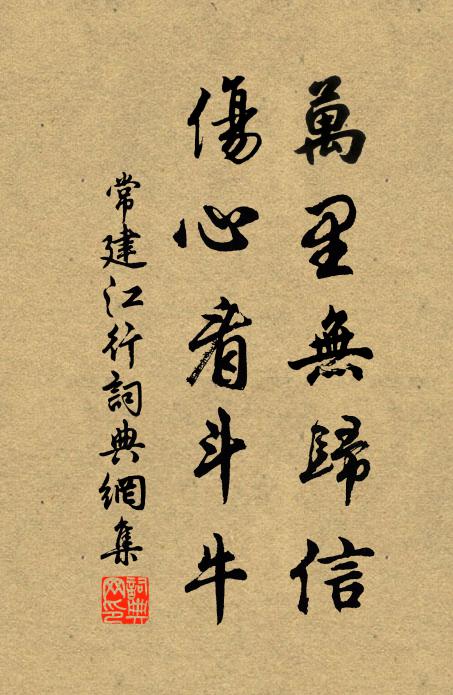 萬里無歸信
傷心看斗牛
常建江行詞典網集
詞典網印